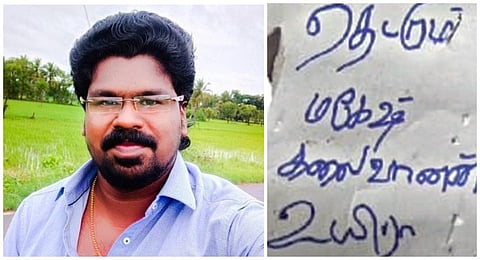 மகேஷ்
கலைவாணன்
உயிரா